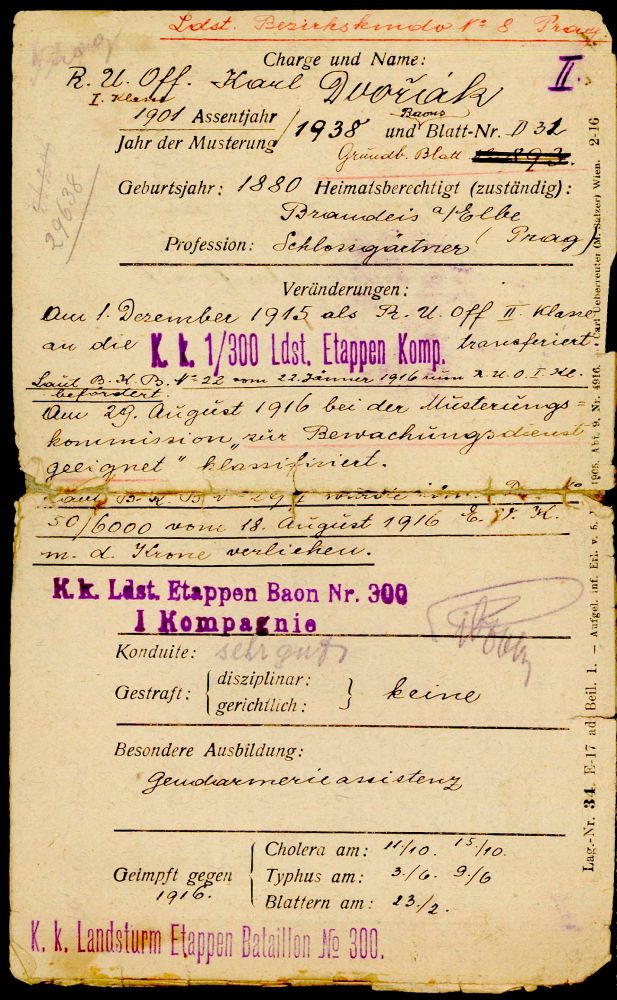 Ldst. Bezirkskmdo Nº 8 Prag.
Charge und Name:
II.
R. U. Off. Karl Dvořák
I. Klasse
1901 Assentjahr
Jahr der Musterung
1938
Baons
und Blatt-Nr. D 32
Grundb. Blatt 893.
29638
Geburtsjahr: 1880 Heimatsberechtigt (zuständig):
Brandeis a/Elbe
Profession: Schlossgärtner (Prag)
Veränderungen:
Am 1. Dezember 1915 als R. U. Off II. Klasse
an die K. k. 1/300 Ldst. Etappen Komp. transferiert
Laut B. K. B. Nº 22 vom 22. Jänner 1916 zum R. U. O. I. Kl.
befördert.
Am 29. August 1916 bei der Musterungs=
kommission „zur Bewachungsdienst
geeignet" klassifiziert.
Laut B. K. B.
50/6000 vom 18. August 1916 E. V. K.
m. d. Krone verliehen.
K. k. Ldst. Etappen Baon Nr. 300
I Kompagnie
Konduite: sehr gut
Gestraft: disziplinar:
gerichtlich:
keine
Besondere Ausbildung:
Gendarmerieassistenz
Geimpft gegen
1916.
Cholera am: 11/10. 15/10.
Typhus am: 3./6. 9./6
Blattern am: 23./2.
K. k. Landsturm Etappen Bataillon № 300.
Lag.-Nr. 34. E-17 ad Beil. 1. — Aufgel. inf. Erl. v. 1905, Abt. 9, Nr. 4916. • Carl Ueberreuter (M. Salzer) Wien. 2-16